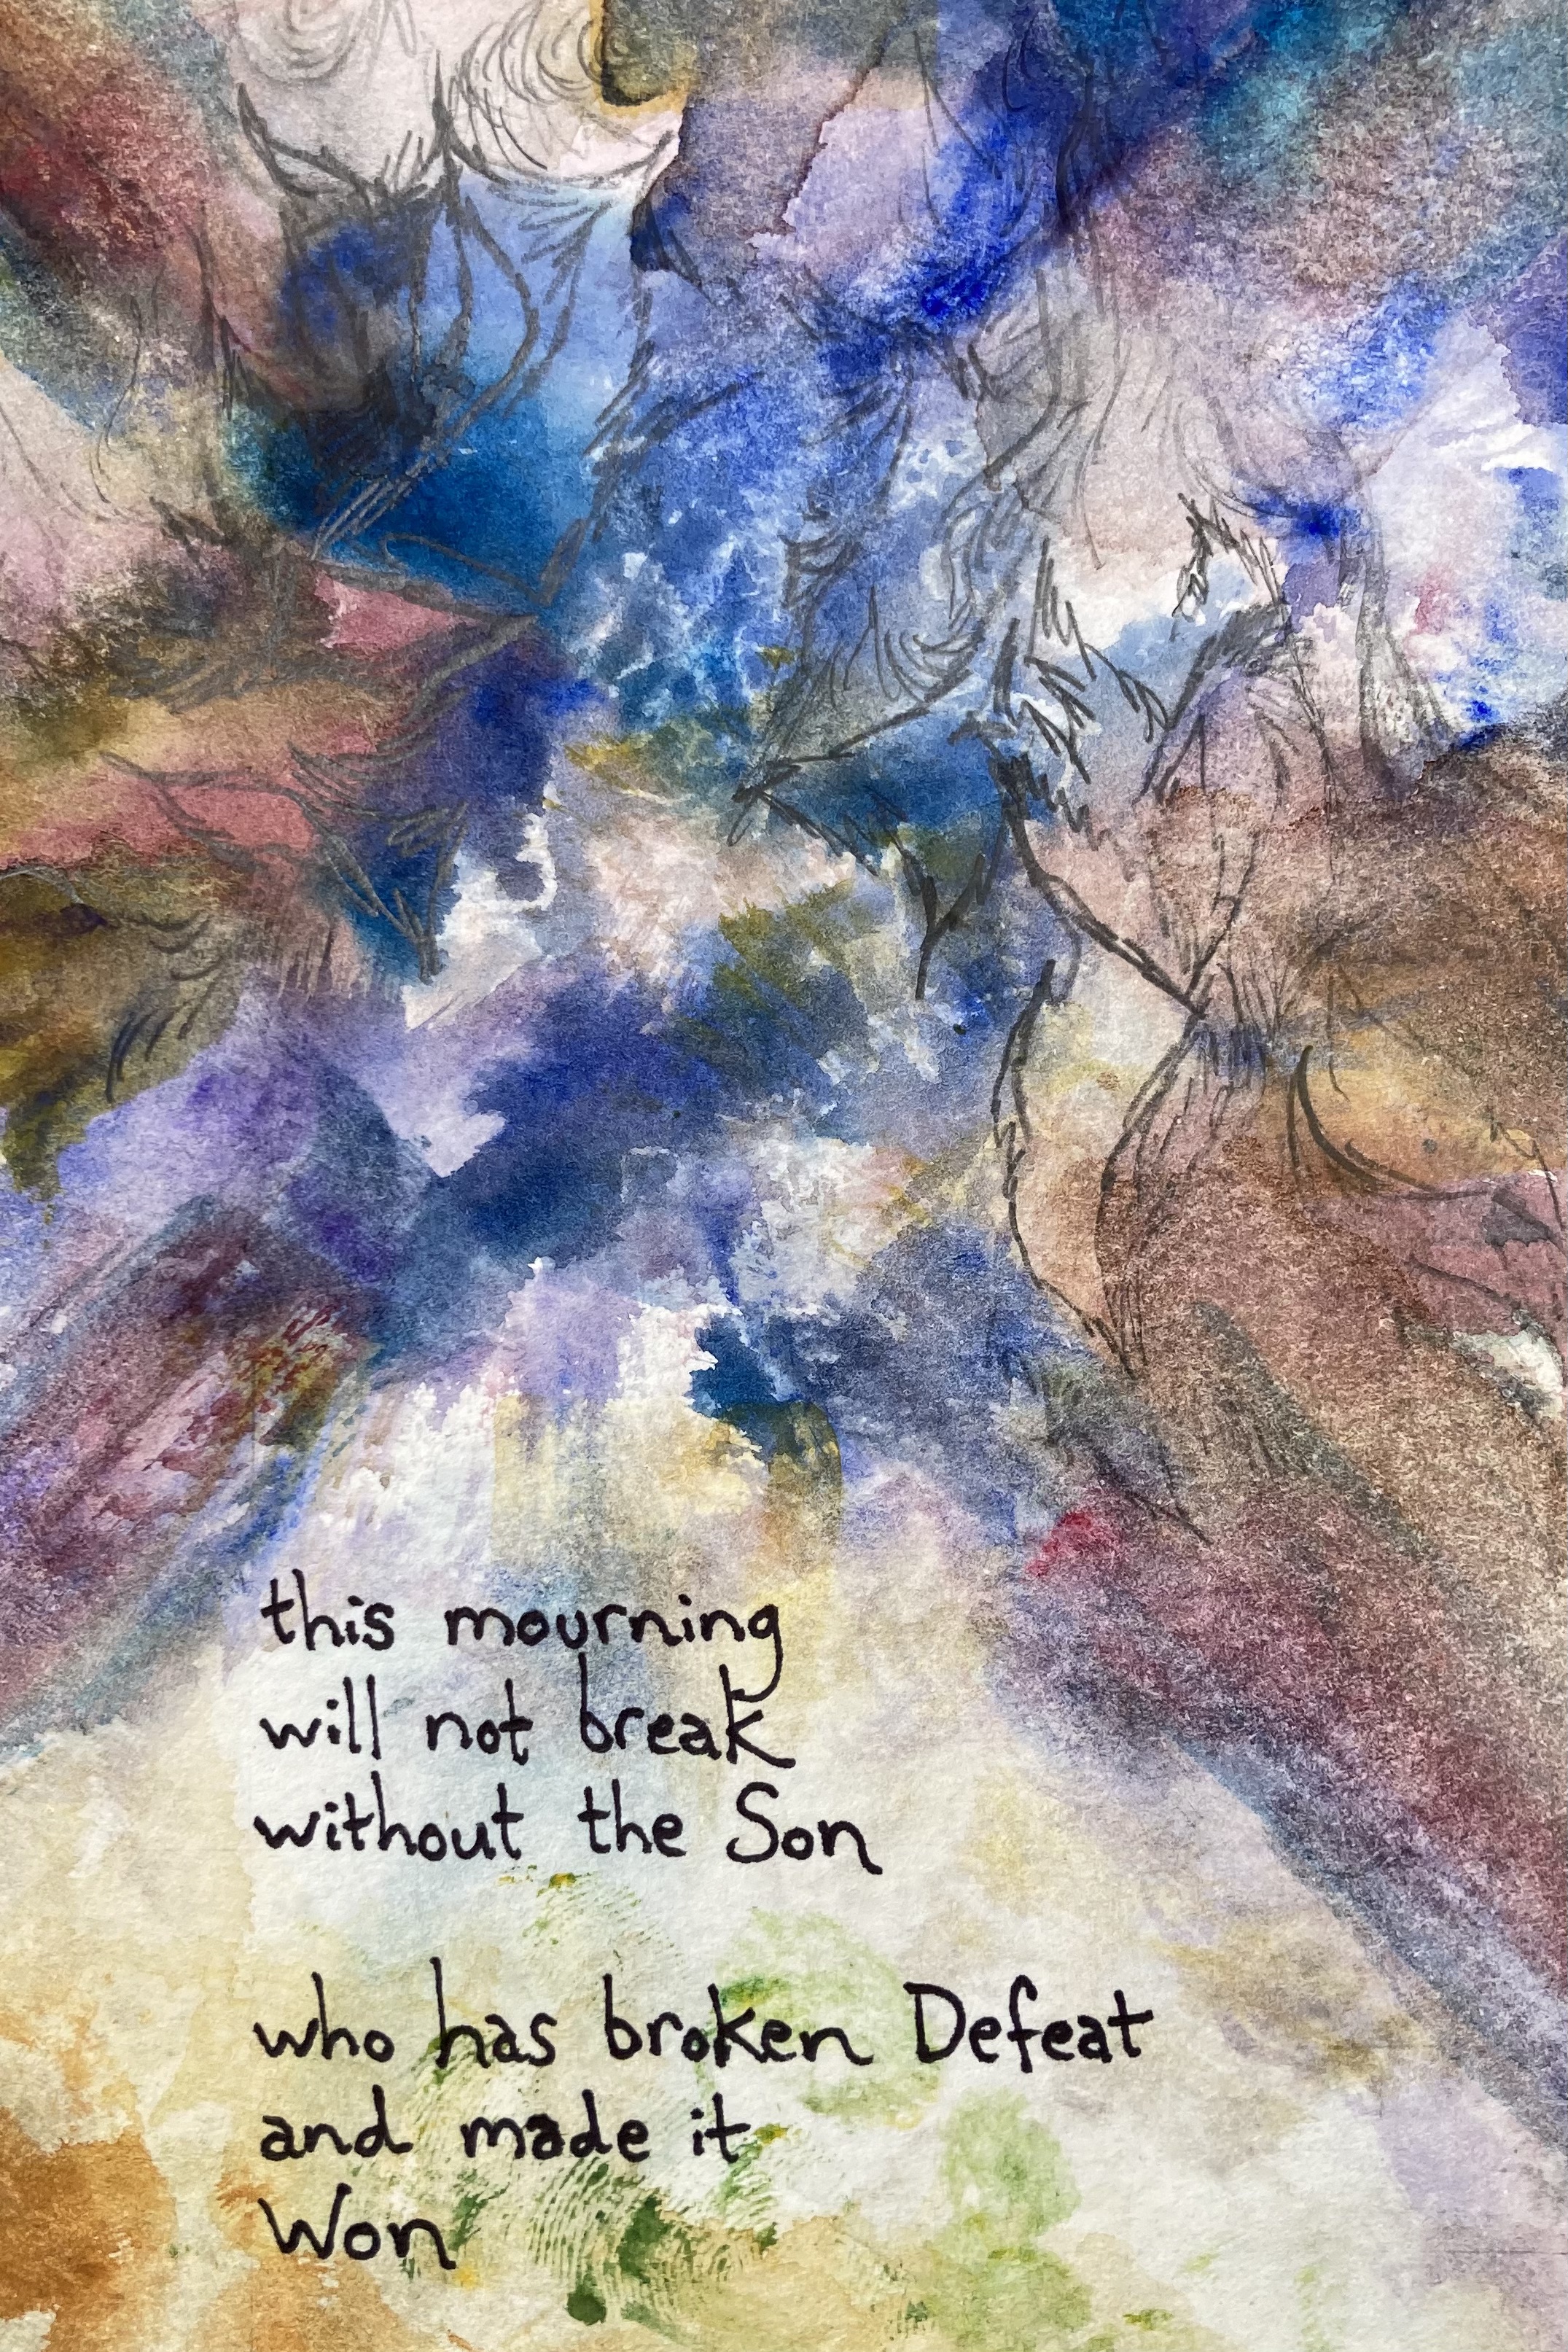 this mourning
will not break
without the Son
who has broken Defeat
and made it
Won